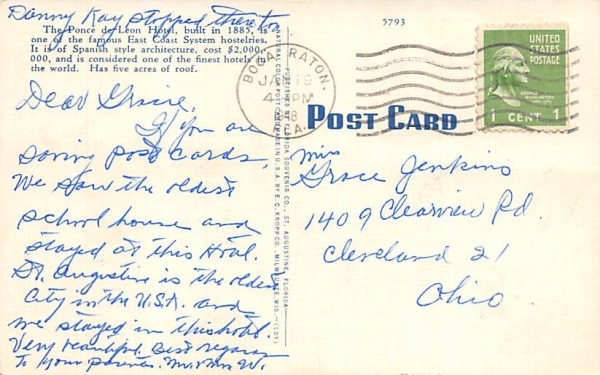 Danny Kay stopped there too
The Ponce de Leon Hotel, built in 1885, is
one of the famous East Coast System hostelries.
It is of Spanish style architecture, cost $2,000,-
000, and is considered one of the finest hotels in
the world. Has five acres of roof.
Dear Grace,
If you are
saving post cards,
We saw the oldest
school house and
stayed at this Hotel.
St. Augustine is the oldest
city in the U.S.A. and
we stayed in this hotel.
Very beautiful. Best regards
to your parents. Mr. & Mrs. W.
NATURAL COLOR POST CARD MADE IN U.S.A. BY E. C. KROPP CO., MILWAUKEE, WIS.
PUBLISHED BY FLORIDA SOUVENIR CO., ST. AUGUSTINE, FLORIDA
5793
BOCA RATON,
JAN 19
4 PM
FLA.
UNITED
STATES
POSTAGE
GEORGE WASHINGTON
1 CENT 1
POST CARD
Miss
Grace Jenkins
1409 Clearview Rd.
Cleveland 21
Ohio